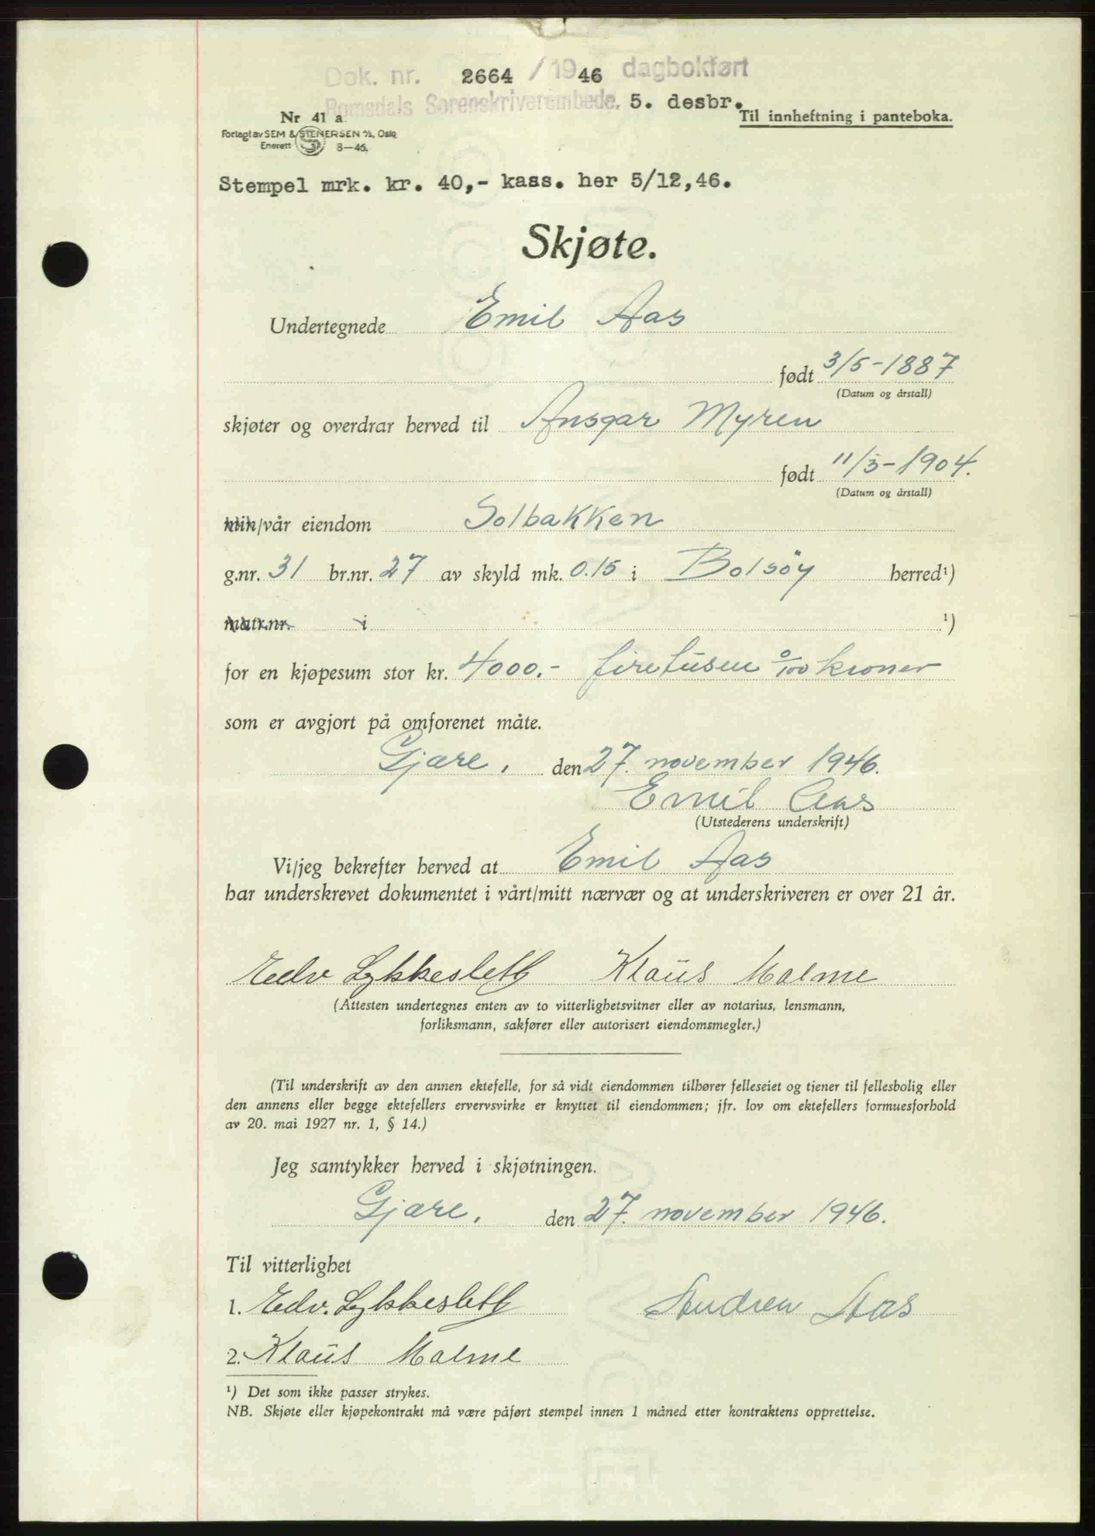 Dok. nr. 2664 / 1946 dagbokført
Romsdals Sorenskriverembede, 5. desbr.
Til innheftning i panteboka.
Nr 41 a
Forlagt av SEM & STENERSEN A/S, Oslo
Enerett 8—46.
Stempel mrk. kr. 40,- kass. her 5/12,46.
Skjøte.
Undertegnede Emil Aas
født 3/5-1887
(Datum og årstall)
skjøter og overdrar herved til Ansgar Myren
født 11/3-1904.
(Datum og årstall)
min/vår eiendom Solbakken
g.nr. 31 br.nr. 27 av skyld mk. 0.15 i Bolsöy herred¹)
matr.nr. i ¹)
for en kjøpesum stor kr. 4000.- firetusen 0/100 kroner
som er avgjort på omforenet måte.
Gjære, den 27. november 1946.
Emil Aas
(Utstederens underskrift)
Vi/jeg bekrefter herved at Emil Aas
har underskrevet dokumentet i vårt/mitt nærvær og at underskriveren er over 21 år.
Edv Lykkeslett Klaus Malme
(Attesten undertegnes enten av to vitterlighetsvitner eller av notarius, lensmann,
forliksmann, sakfører eller autorisert eiendomsmegler.)
(Til underskrift av den annen ektefelle, for så vidt eiendommen tilhører felleseiet og tjener til fellesbolig eller
den annens eller begge ektefellers ervervsvirke er knyttet til eiendommen; jfr. lov om ektefellers formuesforhold
av 20. mai 1927 nr. 1, § 14.)
Jeg samtykker herved i skjøtningen.
Gjære, den 27. november 1946.
Til vitterlighet
1. Edv. Lykkeslett Aas
2. Klaus Malme
¹) Det som ikke passer strykes.
NB. Skjøte eller kjøpekontrakt må være påført stempel innen 1 måned etter kontraktens opprettelse.